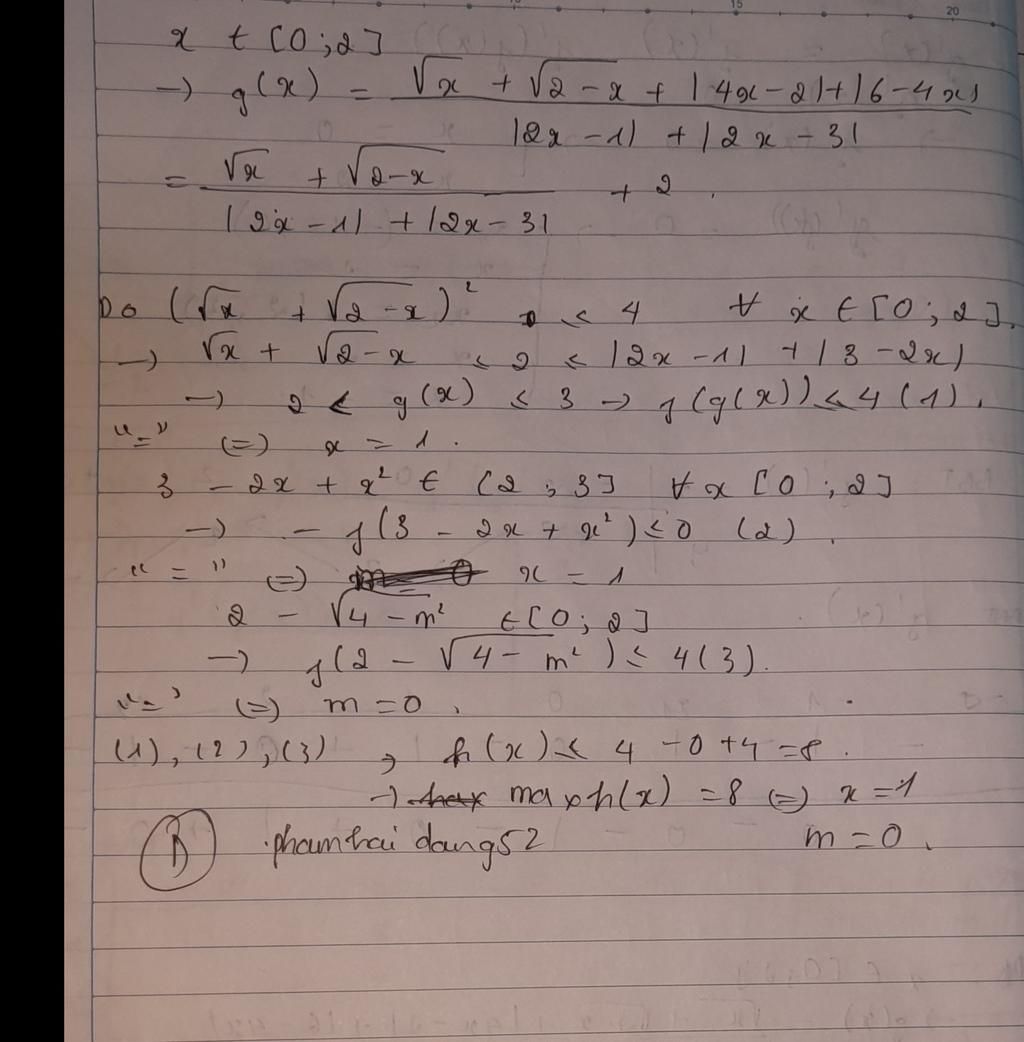 x ∈ [0;2]
→ g(x) = (√x + √(2-x) + |4x-2| + |6-4x|) / (|2x-1| + |2x-3|)
= (√x + √(2-x)) / (|2x-1| + |2x-3|) + 2.
Do (√x + √(2-x))² ≤ 4 ∀ x ∈ [0;2].
→ √x + √(2-x) ≤ 2 ≤ |2x-1| + |3-2x|
→ 2 < g(x) ≤ 3 → f(g(x)) ≤ 4 (1).
"=" (=) x = 1.
3 - 2x + x² ∈ [2;3] ∀ x [0;2]
→ - f(3 - 2x + x²) ≤ 0 (2).
"=" (=) x = 1
2 - √(4-m²) ∈ [0;2]
→ f(2 - √(4-m²)) ≤ 4 (3).
"=" (=) m = 0.
(1), (2), (3) → h(x) ≤ 4 - 0 + 4 = 8.
→ max h(x) = 8 (=) x = 1
m = 0.
B phamhaidang52
15
20